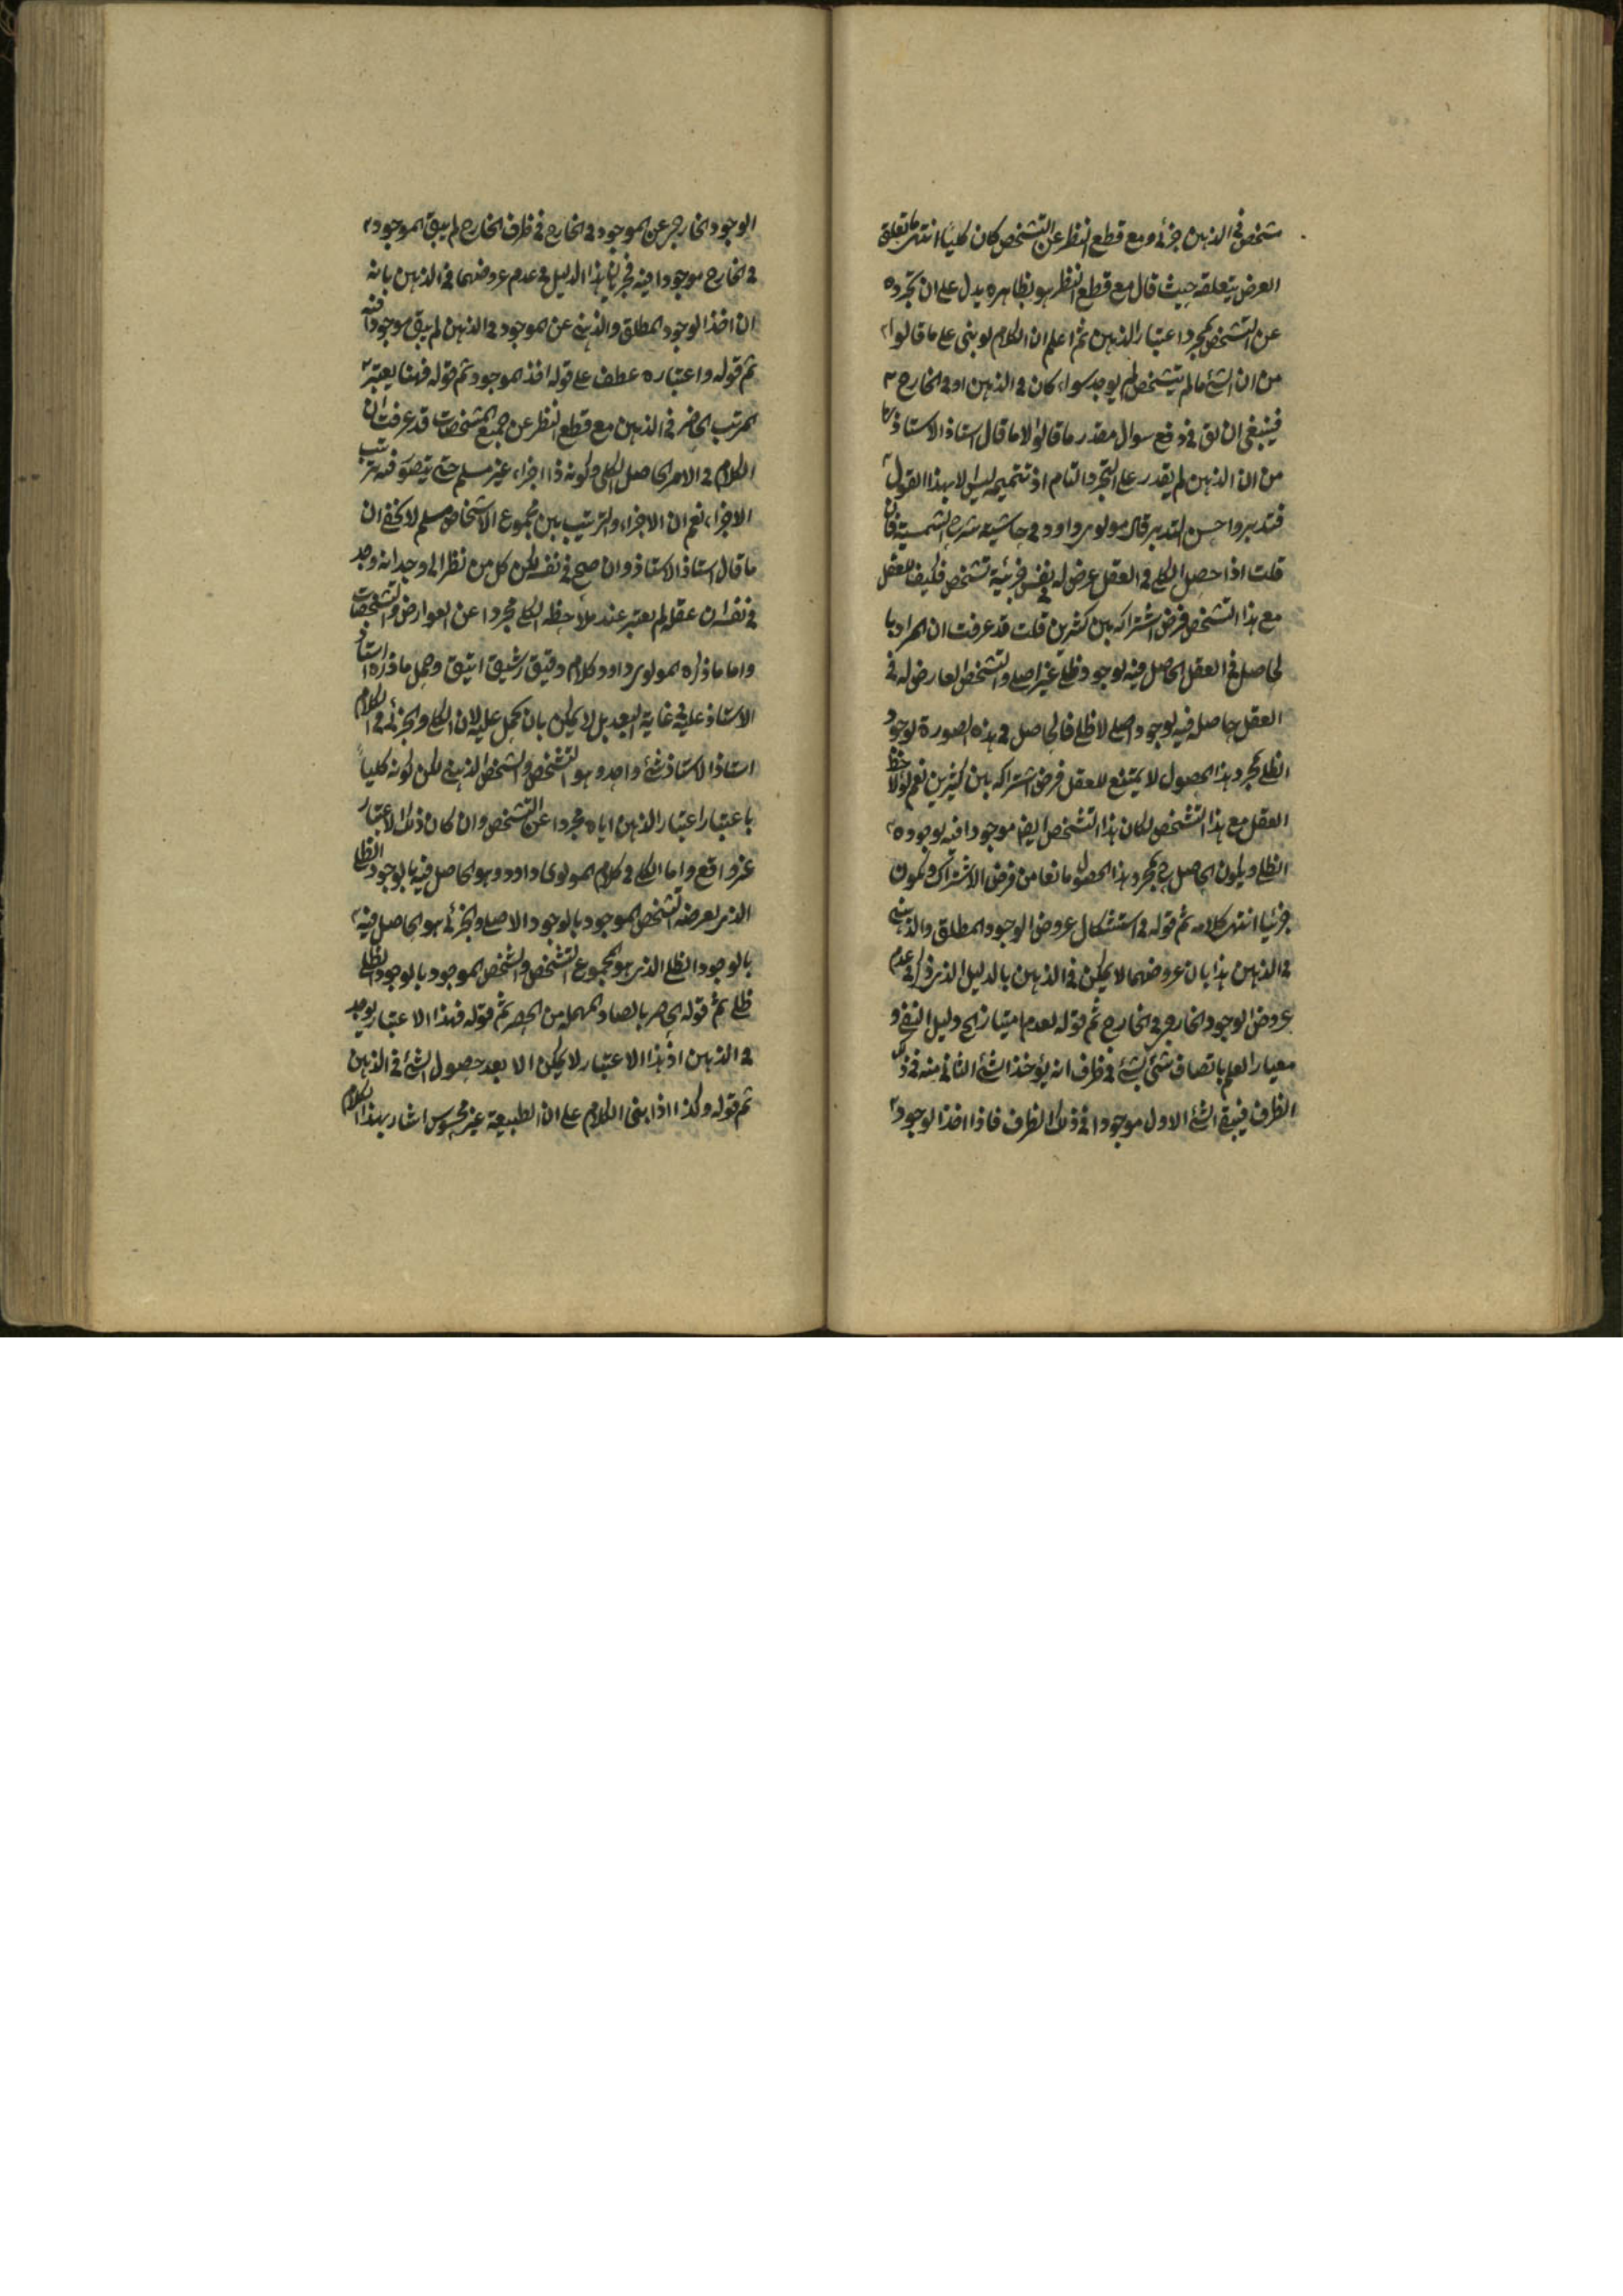 شخص في الذهن جزئي ومع قطع النظر عن التشخص كان كليا انتهى ما تعلق
الغرض بتعلقه حيث قال مع قطع النظر هو بظاهره يدل على ان تجرده
عن التشخص بمجرد اعتبار الذهن ثم اعلم ان الكلام لو بنى على ما قالوا
من ان الشئ ما لم يتشخص لم يوجد سواء كان في الذهن او في الخارج
فينبغي ان يق في دفع سوال مقدر ما قالوا لا ما قال استاذ الاستاذ
من ان الذهن لم يقدر على التجرد التام اذ تتميمه ليس الا بهذا القول
فتدبروا حسن التدبر قال مولوي داود في حاشية شرح الشمسية فان
قلت اذا حصل الكلي في العقل عرض له في نفس جزئية تشخص فكيف للعقل
مع هذا التشخص فرض اشتراكه بين كثيرين قلت قد عرفت ان المراد با
لحاصل في العقل الحاصل فيه بوجود ظلي غير اصلي والتشخص العارض له في
العقل حاصل فيه بوجود اصلي لا ظلي فالحاصل في هذه الصورة بوجود
الظلي بمجرد هذا الحصول لا يمتنع للعقل فرض اشتراكه بين كثيرين نعم لو لاحظ
العقل مع هذا التشخص لكان هذا التشخص ايضا موجودا فيه بوجوده
الظلي ويكون الحاصل في بمجرد هذا الحصول مانعا من فرض الاشتراك ويكون
جزئيا انتهى كلامه ثم قوله في استشكال عروض الوجود المطلق والذهني
في الذهن هذا بان عروضهما لا يمكن في الذهن بالدليل الذي ذكر في عدم
عروض الوجود الخارجي في الخارج ثم قوله لعدم امتياز الخ دليل النفي و
معيار العلم باتصاف شئ بشئ في ظرف انه يؤخذ الشئ الثاني منه في ذلك
الظرف فيبقى الشئ الاول موجودا في ذلك الظرف فاذا اخذ الوجود
الوجود الخارجي عن الموجود في الخارج في ظرف الخارج لم يبق الموجود
في الخارج موجودا فيه فجريان هذا الدليل في عدم عروضهما في الذهن بانه
ان اخذ الوجود المطلق والذهني عن الموجود في الذهن لم يبق موجودا فيه
ثم قوله واعتباره عطف على قوله اخذ الموجود ثم قوله فهنا يعتبر
المرتب الحاضر في الذهن مع قطع النظر عن جميع المشخصات قد عرفت ان
الكلام في الامر الحاصل الكلي وكونه ذا اجزاء غير مسلم حتى يتصور فيه ترتب
الاجزاء نعم ان الاجزاء والترتيب بين مجموع الاشخاص مسلم لا يخفى ان
ما قال استاذ الاستاذ وان صح في نفسه لكن كل من نظر الى وجدانه وجد
في نفسه ان عقله لم يعتبر عند ملاحظه الكلي مجردا عن العوارض والتشخصات
واما ما ذكره المولوي داود كلام دقيق رشيق انيق وحمل ما ذكره استاذ
الاستاذ عليه في غاية البعد بل لا يمكن بان يحمل عليه لان الكلي والجزئي في الكلام
استاذ الاستاذ شئ واحد وهو التشخص والشخص الذهني لكن كونه كليا
باعتبار اعتبار الذهن اياه مجردا عن التشخص وان كان ذلك الاعتبار
غير واقع واما الكلي في كلام المولوي داود وهو الحاصل فيه بالوجود الظلي
الذي يعرضه تشخص الموجود بالوجود الاصلي والجزئي هو الحاصل فيه
بالوجود الظلي الذي هو مجموع التشخص والشخص الموجود بالوجود الظلي
ظلي ثم قوله الحاصر بالصاد المهمله من الحصر ثم قوله فهذا الاعتبار يوجد
في الذهن اذ هذا الاعتبار لا يمكن الا بعد حصول الشئ في الذهن
ثم قوله وكذا اذا بنى الكلام على ان الطبيعة غير محسوس اشار بهذا الكلام